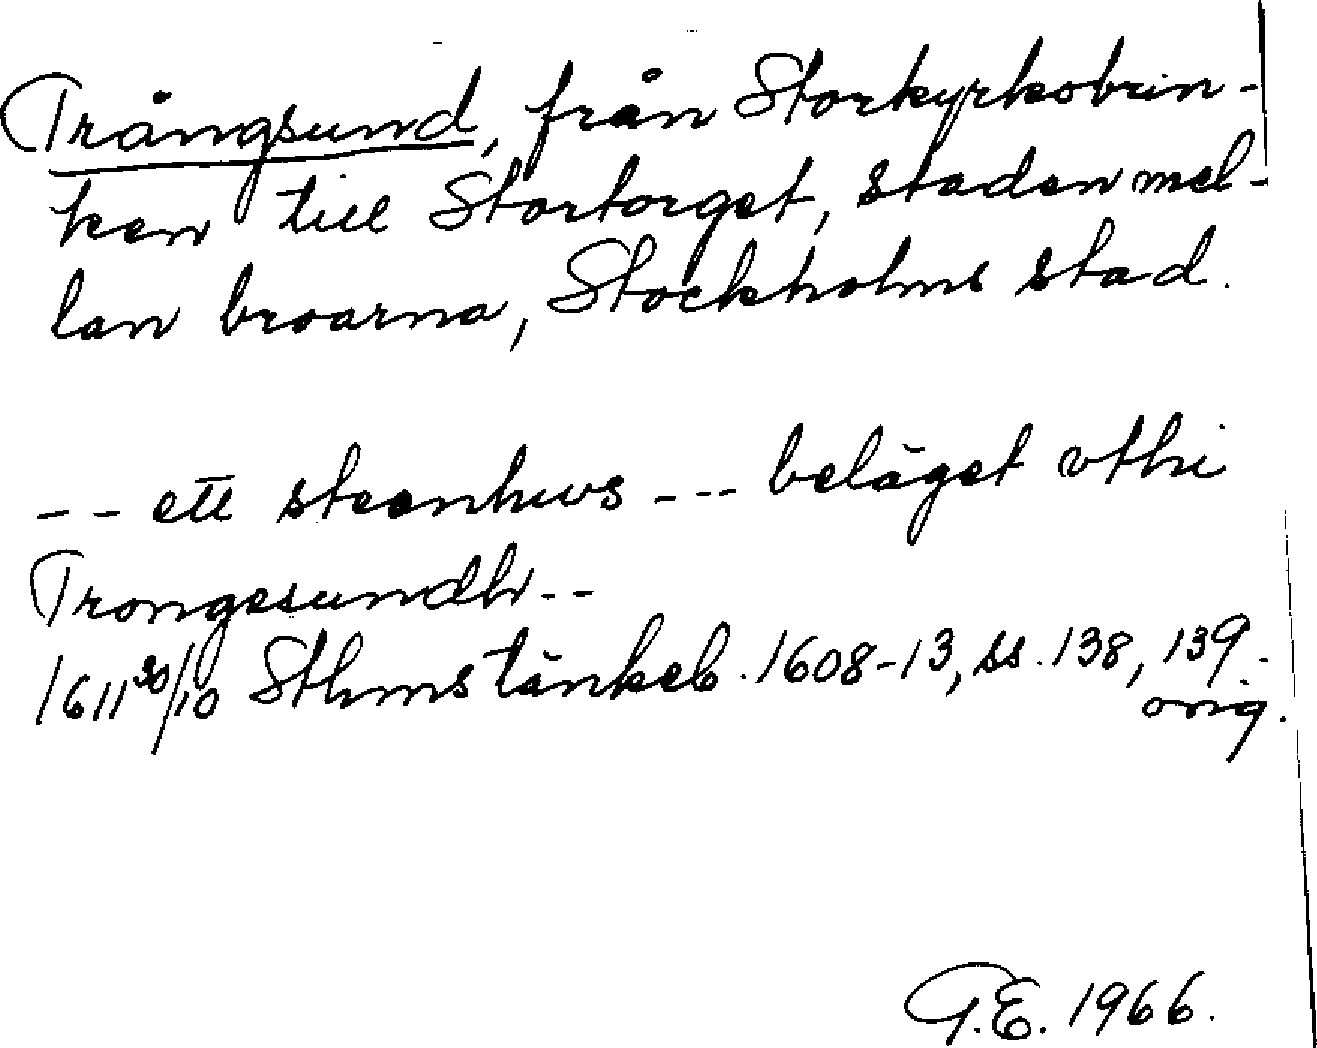 Trångsund, från Storkyrkobrin-
ken till Stortorget, staden mel-
lan broarna, Stockholms stad.
-- ett steenhws --- beläget vthi
Trongesundh --
1611 30/10 Sthms tänkeb. 1608-13, ss. 138, 139.
orig.
G.E. 1966.